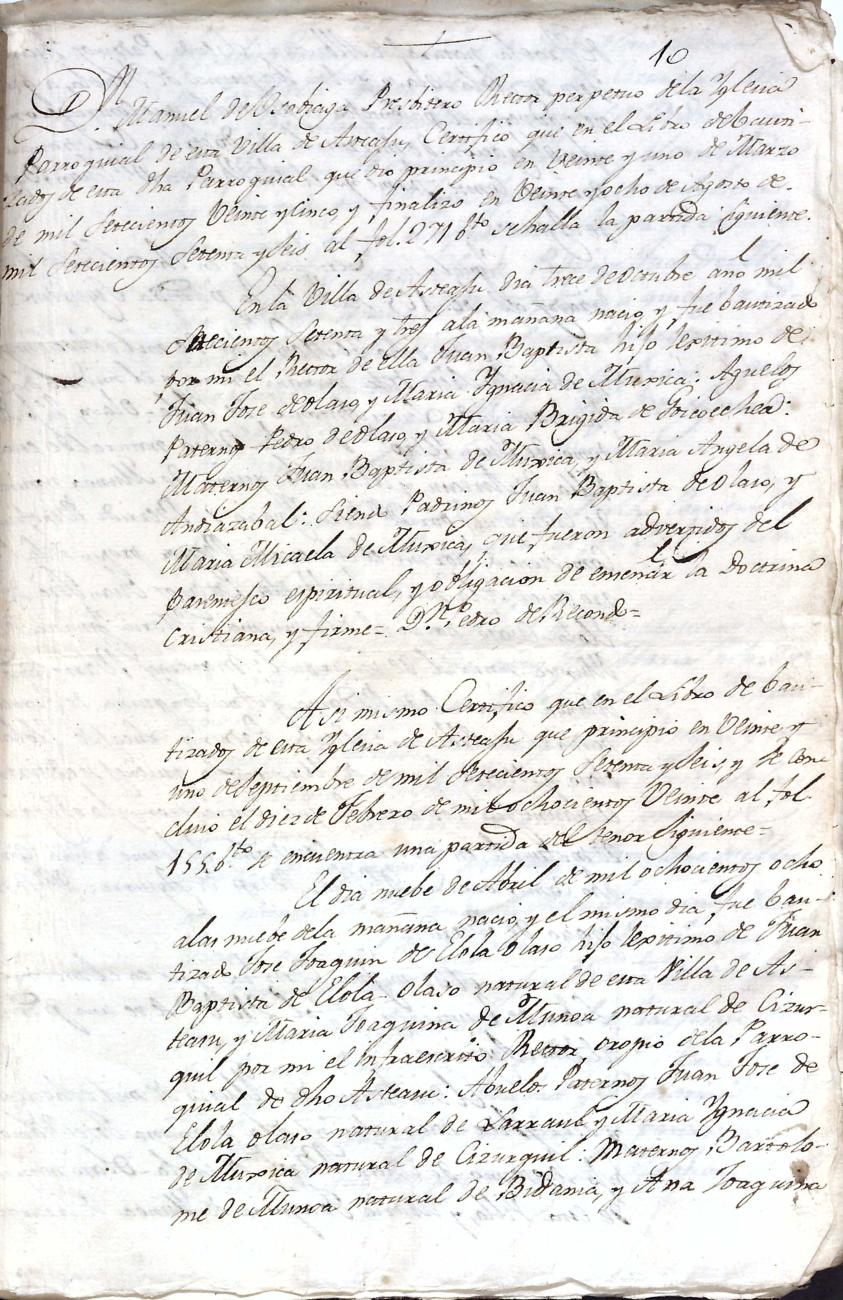 10
Dn. Manuel de Presbitero Rector perpetuo de la Yglesia
Parroquial de esta Villa de Asteasu, Certifico que en el Libro de bauti-
zados de esta dha Parroquial que dio principio en Veinte y uno de Marzo
de mil Setecientos Veinte y cinco, y finalizo en Veinte y ocho de Agosto de
mil Setecientos Setenta y Seis al fol. 271 bto se halla la partida siguiente.
En la Villa de Asteasu dia trece de octubre año mil
Setecientos Setenta y tres a la mañana nacio, y fue bautizado
por mi el Rector de ella Juan Baptista hijo lexitimo de
Juan Jose de olaso, y Maria Ygnacia de Muxica; Aguelos
Paternos Pedro de olaso, y Maria Brigida de Ycocechea:
Maternos Juan Baptista de Muxica, y Maria Angela de
Andiazabal: Siend Padrinos Juan Baptista de olaso, y
Maria Micaela de Muxica, que fueron advertidos del
parentesco espiritual, y obligacion de enseñar la Doctrina
Cristiana, y firme= Dn. Pedro de Recondo=
Asi mismo Certifico que en el Libro de bau-
tizados de esta Yglesia de Asteasu que principio en Veinte y
uno de Septiembre de mil Setecientos Setenta y Seis, y se con-
cluio el diez de Febrero de mil ochocientos Veinte al fol.
155 bto. se encuentra una partida del tenor Siguiente=
El dia nuebe de Abril de mil ochocientos ocho
a las nuebe de la mañana nacio, y el mismo dia fue bau-
tizado Jose Joaquin de Elola olaso hijo lexitimo de Juan
Baptista de Elola-olaso natural de esta Villa de As-
teasu, y Maria Joaquina de Munoa natural de Cizur-
quil por mi el infraescrito Rector propio de la Parro-
quial de dho Asteasu: Abuelos Paternos Juan Jose de
Elola olaso natural de Larraul y Maria Ygnacia
de Muxica natural de Cizurquil: Maternos Bartolo-
me de Munoa natural de Bidania, y Ana Joaquina